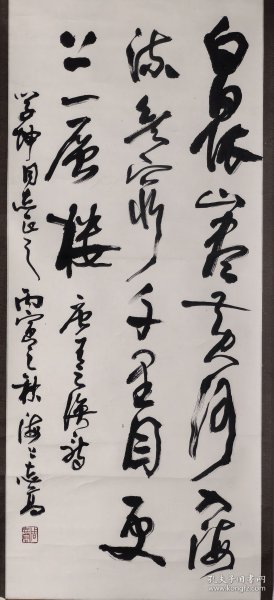 白日依山尽黄河入海
流欲穷千里目更
上一层楼 唐王之涣诗
学坤同志正之 丙寅之秋 海上志高
孔夫子旧书网